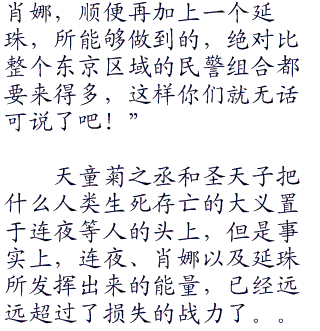 肖娜，顺便再加上一个延
珠，所能够做到的，绝对比
整个东京区域的民警组合都
要来得多，这样你们就无话
可说了吧！”
天童菊之丞和圣天子把
什么人类生死存亡的大义置
于连夜等人的头上，但是事
实上，连夜、肖娜以及延珠
所发挥出来的能量，已经远
远超过了损失的战力了。。